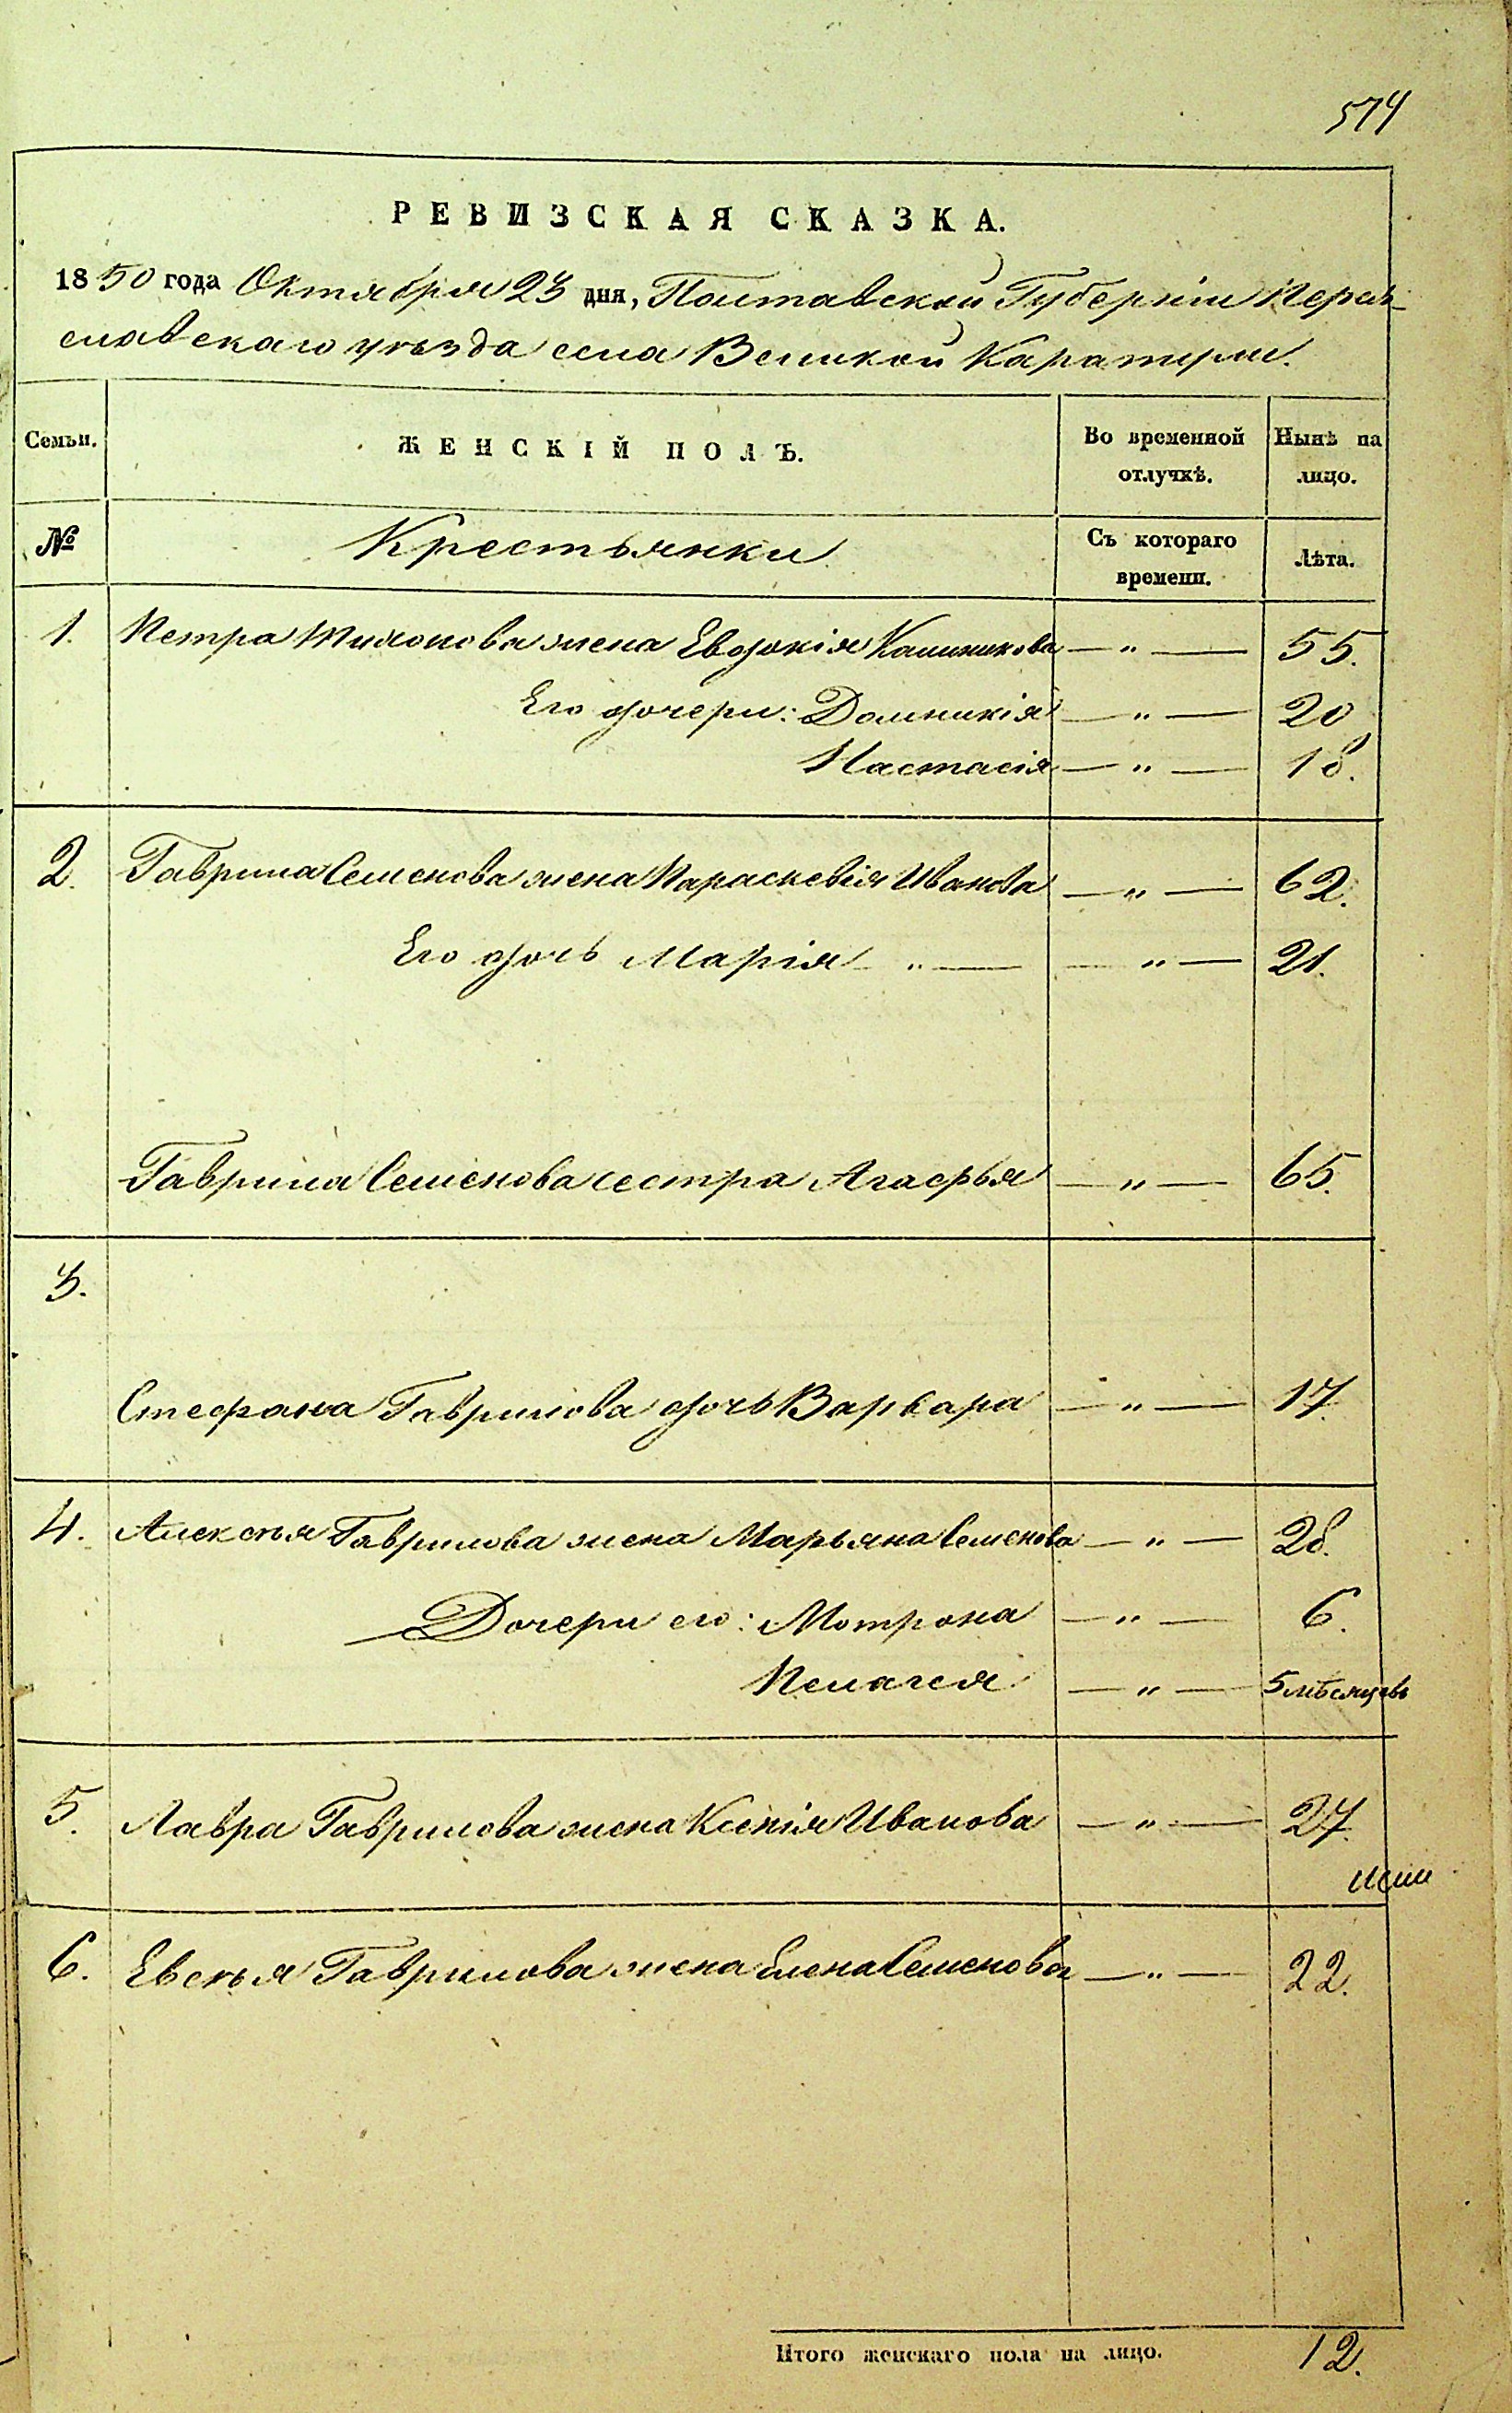 574
РЕВИЗСКАЯ СКАЗКА.
1850 года Октября 23 дня, Полтавской Губерніи Перея-
славскаго уѣзда села Великой Каратули.
Семьи.
ЖЕНСКІЙ ПОЛЪ.
Во временной отлучкѣ.
Нынѣ на лицо.
№
Крестьянки
Съ котораго времени.
Лѣта.
1. Петра Тихонова жена Евдокія Калиникова — " — 55.
Его дочери: Домникія — " — 20
Настасія — " — 18.
2. Гаврила Семенова жена Параскевія Иванова — " — 62.
Его дочь Марія " — — " — 21.
Гаврила Семенова сестра Агафья — " — 65.
3.
Стефана Гаврилова дочь Варвара — " — 17.
4. Алексѣя Гаврилова жена Марьяна Семенова — " — 28.
Дочери его: Мотрона — " — 6.
Пелагея — " — 5 мѣсяцевъ
5. Лавра Гаврилова жена Ксенія Иванова — " — 27.
6. Евсѣя Гаврилова жена Елена Семенова — " — 22.
Итого женскаго пола на лицо. 12.